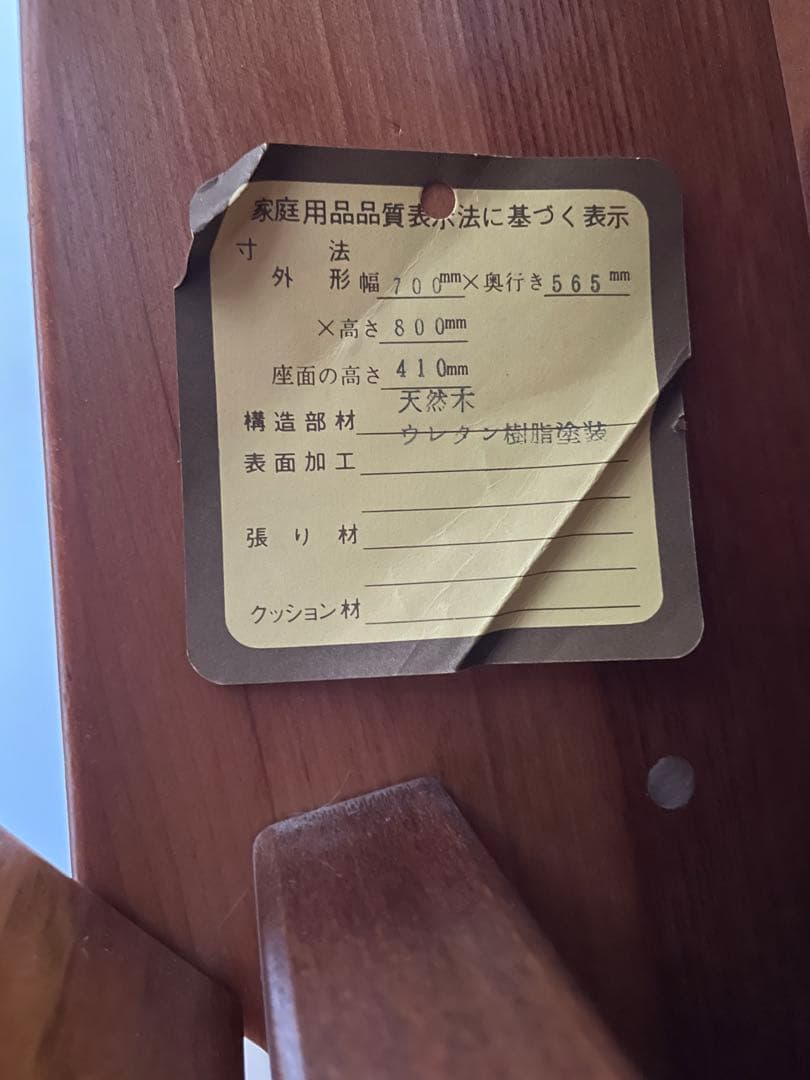 家庭用品品質表示法に基づく表示
寸法
外形 幅 700mm×奥行き565mm
×高さ800mm
座面の高さ410mm
天然木
構造部材
ウレタン樹脂塗装
表面加工
張り材
クッション材